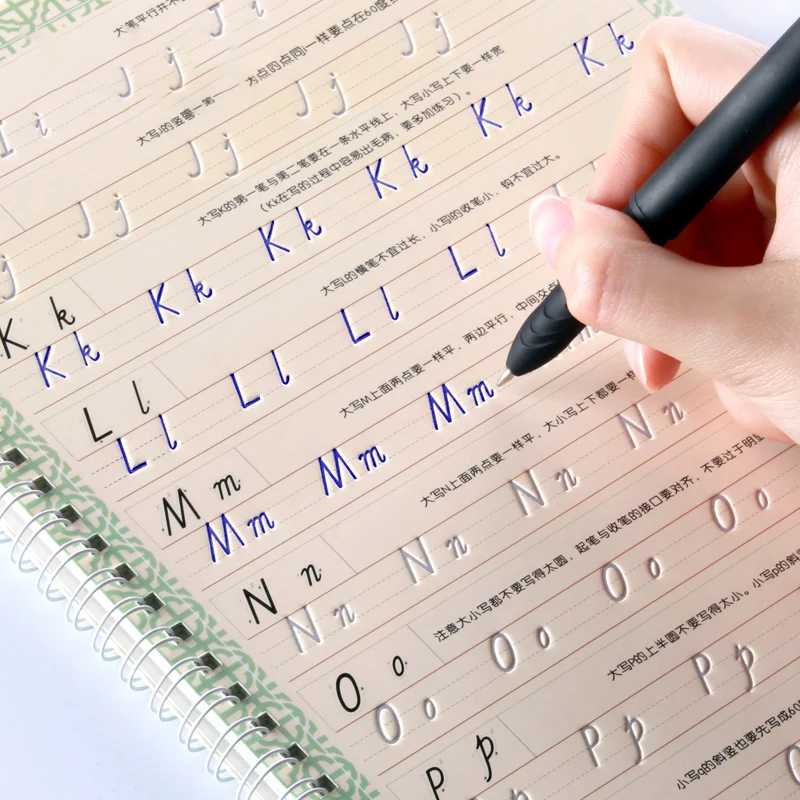 I i J j J i
方点四点同i一样要点在60度
j J j J j J j J j
大写J的竖弯一第一
大写K的第一笔与第二笔要在一条水平线上，大写小写上下要一样宽
（Kk在写的过程中容易出毛病，要多加练习）。
K k
K k K k K k K k K k K k
大写L的横笔不宜过长，小写l的收笔小，钩不宜过大。
L l
L l L l L l L l
大写M上面两点要一样平，两边平行，中间交点
M m
M m M m M m
大写N上面两点要一样平，大小写上下都要一样
N n
N n N n N n N n
注意大小写都不要写得太圆，起笔与收笔的接口要对齐，不要过于明显
O o
O o O o O o O o
大写P的上半圆不要写得太小。小写p的斜
P p
P p P p
小写q的斜竖也要先写成60